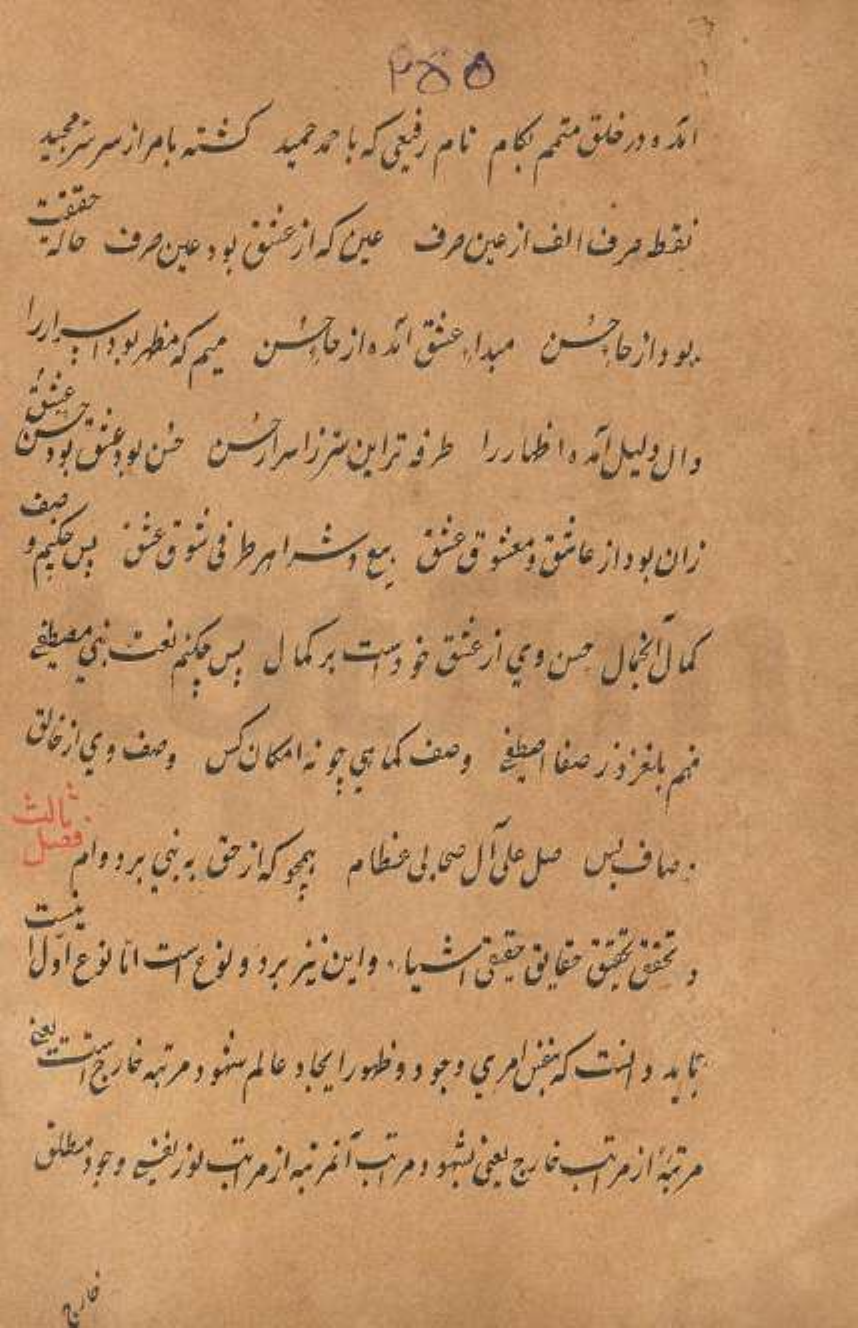 ۲۵۵
آمده در خلق متمم بکام نام رفیعی که با حمد حمید کشته بامر از سر سر مجید
نقطه حرف الف از عین حرف عین که از عشق بود عین حرف حاکه حقیقت
بود از حاء حُسن مبداء عشق آمده از حاء حُسن میم که مظهر بود اسرار را
دال دلیل آمده اظهار را طرفه تر این سر ز اسرار حُسن حُسن بود عشق بود حسن عشق
زان بود از عاشق و معشوق عشق بیع و شرا هر طرفی شوق عشق پس چکنیم وصف
کمال آنجمال حسن وی از عشق خود است بر کمال پس چکنم نعت نبی مصطفی
فهم بلغزد ز صفا اصطفی وصف کماهی چو نه امکان کس وصف وی از خالق
وصاف بس صل علی آل صحابی عظام همچو که از حق به نبی بر دوام فصل ثالث
در تحقق تحقیق حقایق حقیقی اشیاء و این نیز بر دو نوع است امّا نوع اوّل اینست
بباید دانست که بنفس امری وجود و ظهور ایجاد عالم شهود مرتبه خارج است یعنی
مرتبهٔ از مراتب خارج یعنی شهود و مراتب آنمرتبه از مراتب نور نفسی وجود مطلق
خارج